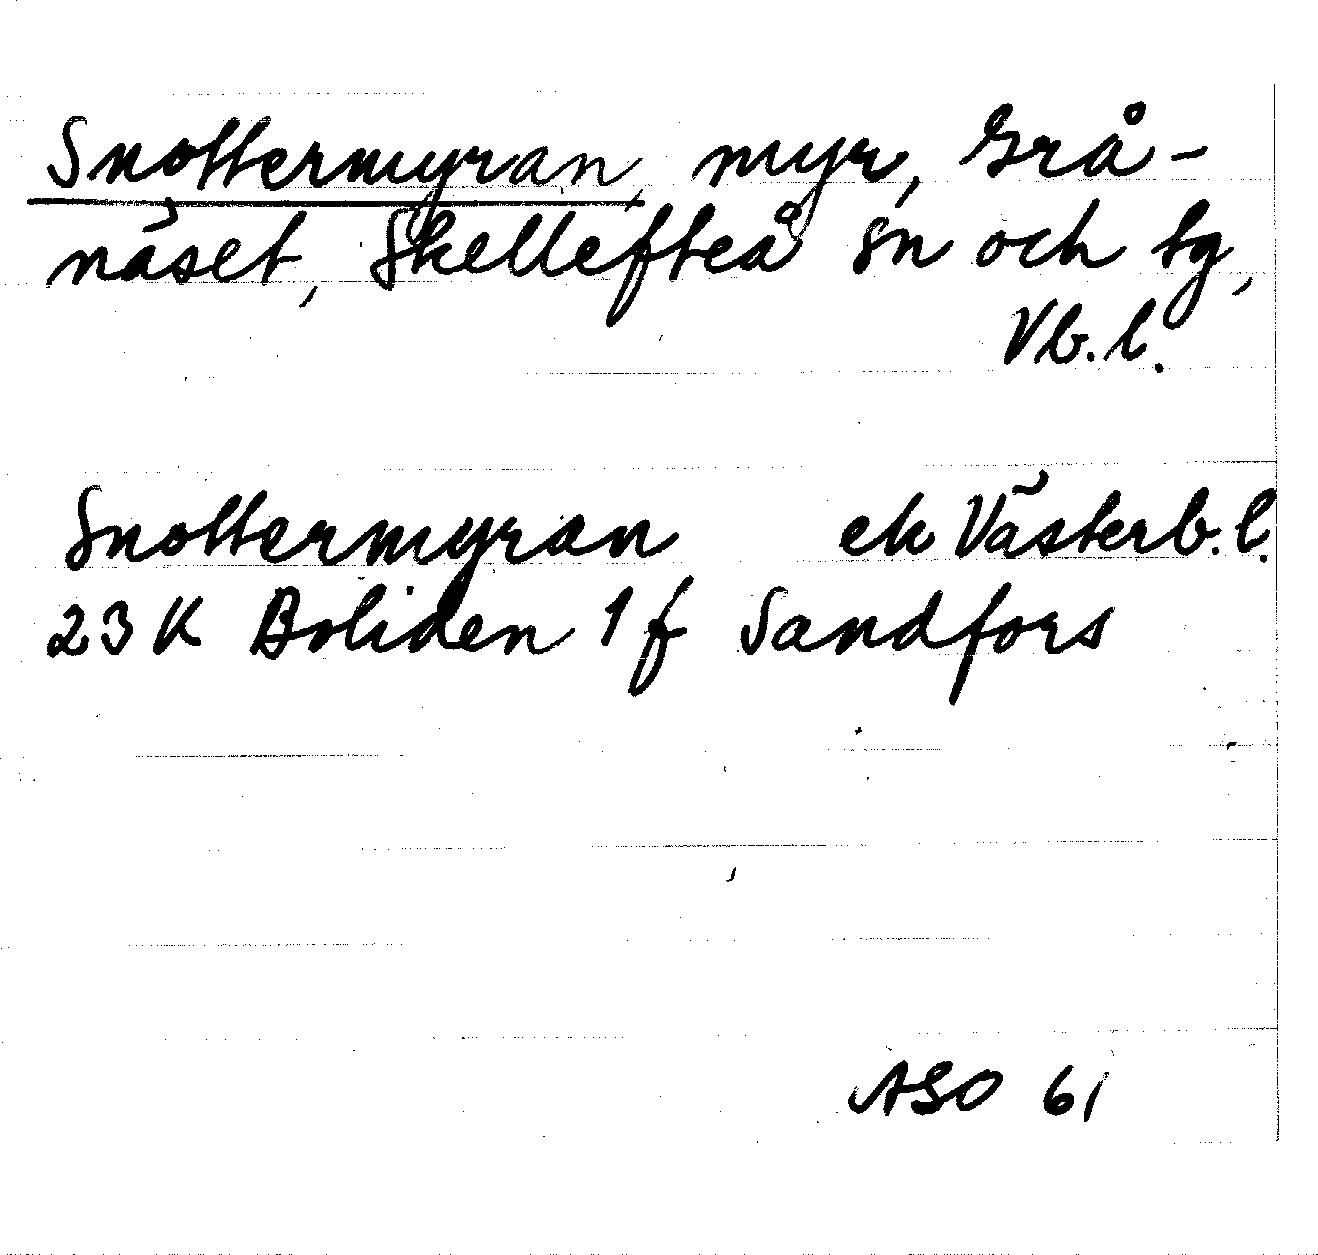 Snottermyran, myr, Grå-
näset, Skellefteå sn och tg,
Vb.l.
Snottermyran ek Västerb.l.
23 K Boliden 1 f Sandfors
ASO 61